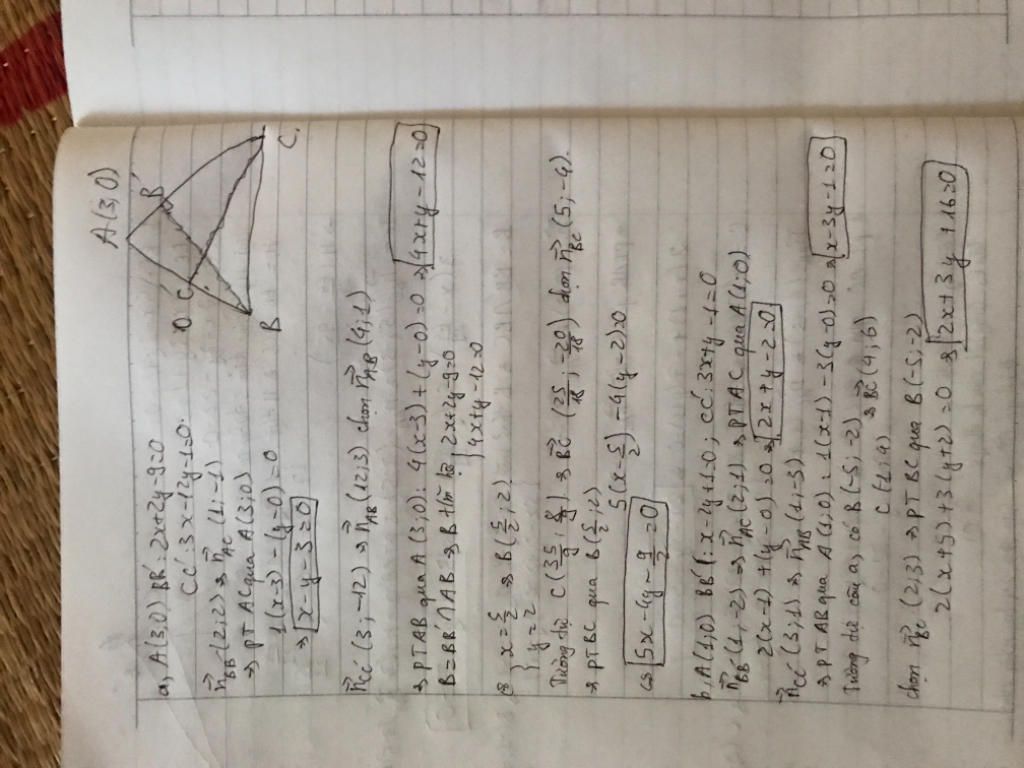 a, A(3,0) BB': 2x+2y-9=0
CC': 3x-12y-1=0.
n⃗BB'(2;2) ⇒ n⃗AC(1;-1)
⇒ PT AC qua A(3;0)
1(x-3)-(y-0)=0
⇒ x-y-3=0
A(3,0)
B'
C'
B
C
n⃗CC'(3;-12) ⇒ n⃗AB(12;3) chọn n⃗AB(4;1)
⇒ PTAB qua A(3;0): 4(x-3)+(y-0)=0 ⇒ 4x+y-12=0
B=BB'∩AB ⇒ B t/m hệ { 2x+2y-9=0
4x+y-12=0
⇔ { x=5/2 ⇒ B(5/2;2)
y=2
Tương tự C(35/9; 8/9) ⇒ B⃗C(25/18; -20/18) chọn n⃗BC(5;-4).
⇒ PTBC qua B(5/2;2)
5(x-5/2)-4(y-2)=0
⇔ 5x-4y-9/2=0
b, A(1;0) BB': x-2y+1=0; CC': 3x+y-1=0
n⃗BB'(1,-2) ⇒ n⃗AC(2;1) ⇒ PTAC qua A(1;0)
2(x-1)+(y-0)=0 ⇒ 2x+y-2=0
n⃗CC'(3;1) ⇒ n⃗AB(1;-3)
⇒ PTAB qua A(1;0): 1(x-1)-3(y-0)=0 ⇒ x-3y-1=0
Tương tự câu a, có B(-5;-2)
⇒ B⃗C(4;6)
chọn n⃗BC(2;3) ⇒ PTBC qua B(-5;-2)
2(x+5)+3(y+2)=0 ⇒ 2x+3y+16=0